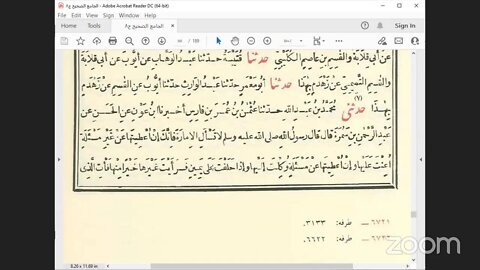 الجامع الصحيح ج٨.pdf - Adobe Acrobat Reader DC (64-bit)
Sign In
/ 189
عن أبي قلابة والقسم بن عاصم الكليبي حدثنا قتيبة حدثنا عبد الوهاب عن أيوب عن أبي قلابة
والقسم التميمي عن زهدم بهذا حدثنا أبو معمر حدثنا عبد الوارث حدثنا أيوب عن القسم عن زهدم
بهذا حدثني محمد بن عبد الله حدثنا عثمن بن عمر بن فارس أخبرنا ابن عون عن الحسن عن
عبد الرحمن بن سمرة قال قال رسول الله صلى الله عليه وسلم لا تسأل الإمارة فإنك إن أعطيتها عن غير مسئلة
أعنت عليها وإن أعطيتها عن مسئلة وكلت إليها وإذا حلفت على يمين فرأيت غيرها خيرا منها فأت الذي
٦٧٢١ — طرفه: ٣١٣٣.
٦٧٢٢ — طرفه: ٦٦٢٢.
8.26 x 11.69 in
zoom